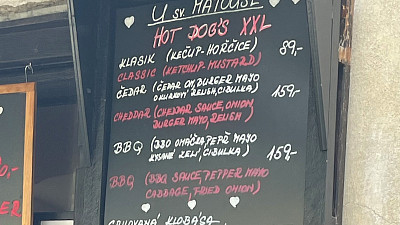 U SV. MATOUŠE
HOT DOG'S XXL
KLASIK (KEČUP-HOŘČICE) 89,-
CLASSIC (KETCHUP-MUSTARD)
ČEDAR (ČEDAR OM, BURGER MAYO
OKURKOVÝ RELISH, CIBULKA) 159,-
CHEDDAR (CHEDDAR SAUCE, ONION,
BURGER MAYO, RELISH)
BBQ (BBQ OMÁČKA, PEPŘ MAYO
KYSANÉ ZELÍ, CIBULKA) 159,-
BBQ (BBQ SAUCE, PEPPER MAYO
CABBAGE, FRIED ONION)
GRILOVANÁ KLOBÁSA
ER